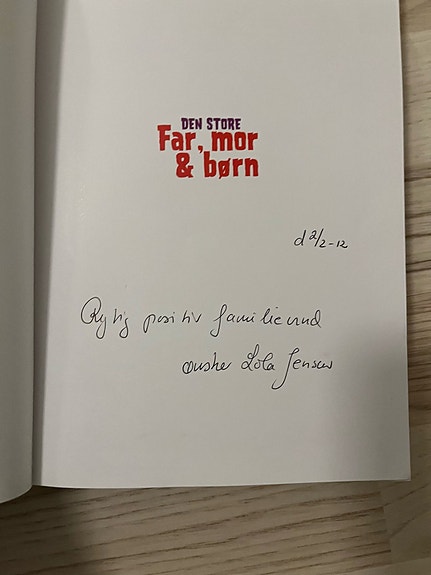 DEN STORE
Far, mor
& børn
d 2/2-12
positiv familie
ønsker Lola Jensen